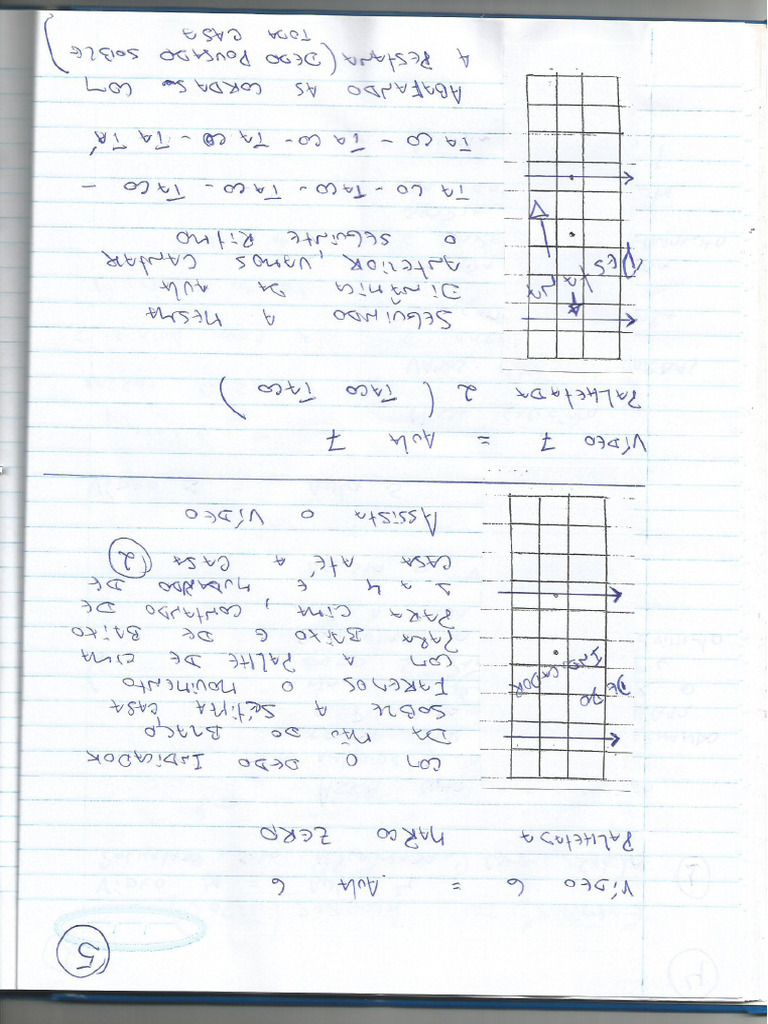 5
VÍDEO 6 = AULA 6
PALHETADA MARCO ZERO
COM O DEDO INDICADOR
DA MÃO DO BRAÇO
SOBRE A SÉTIMA CASA
FAREMOS O MOVIMENTO
COM A PALHETE DE CIMA
PARA BAIXO E DE BAIXO
PARA CIMA, CONTANDO DE
1 A 4 E MUDANDO DE
CASA ATÉ A CASA 2
ASSISTA O VÍDEO
DEDO
INDICADOR
VÍDEO 7 = AULA 7
PALHETADA 2 (TACO TACO)
SEGUINDO A MESMA
DINÂMICA DA AULA
ANTERIOR, VAMOS CANTAR
O SEGUINTE RITMO
TACO - TACO - TACO - TACO -
TACO - TACO - TACO - TA TÁ
ABAFANDO AS CORDAS COM
A PESTANA (DEDO POUSADO SOBRE
TODA CASA)
PESTANA